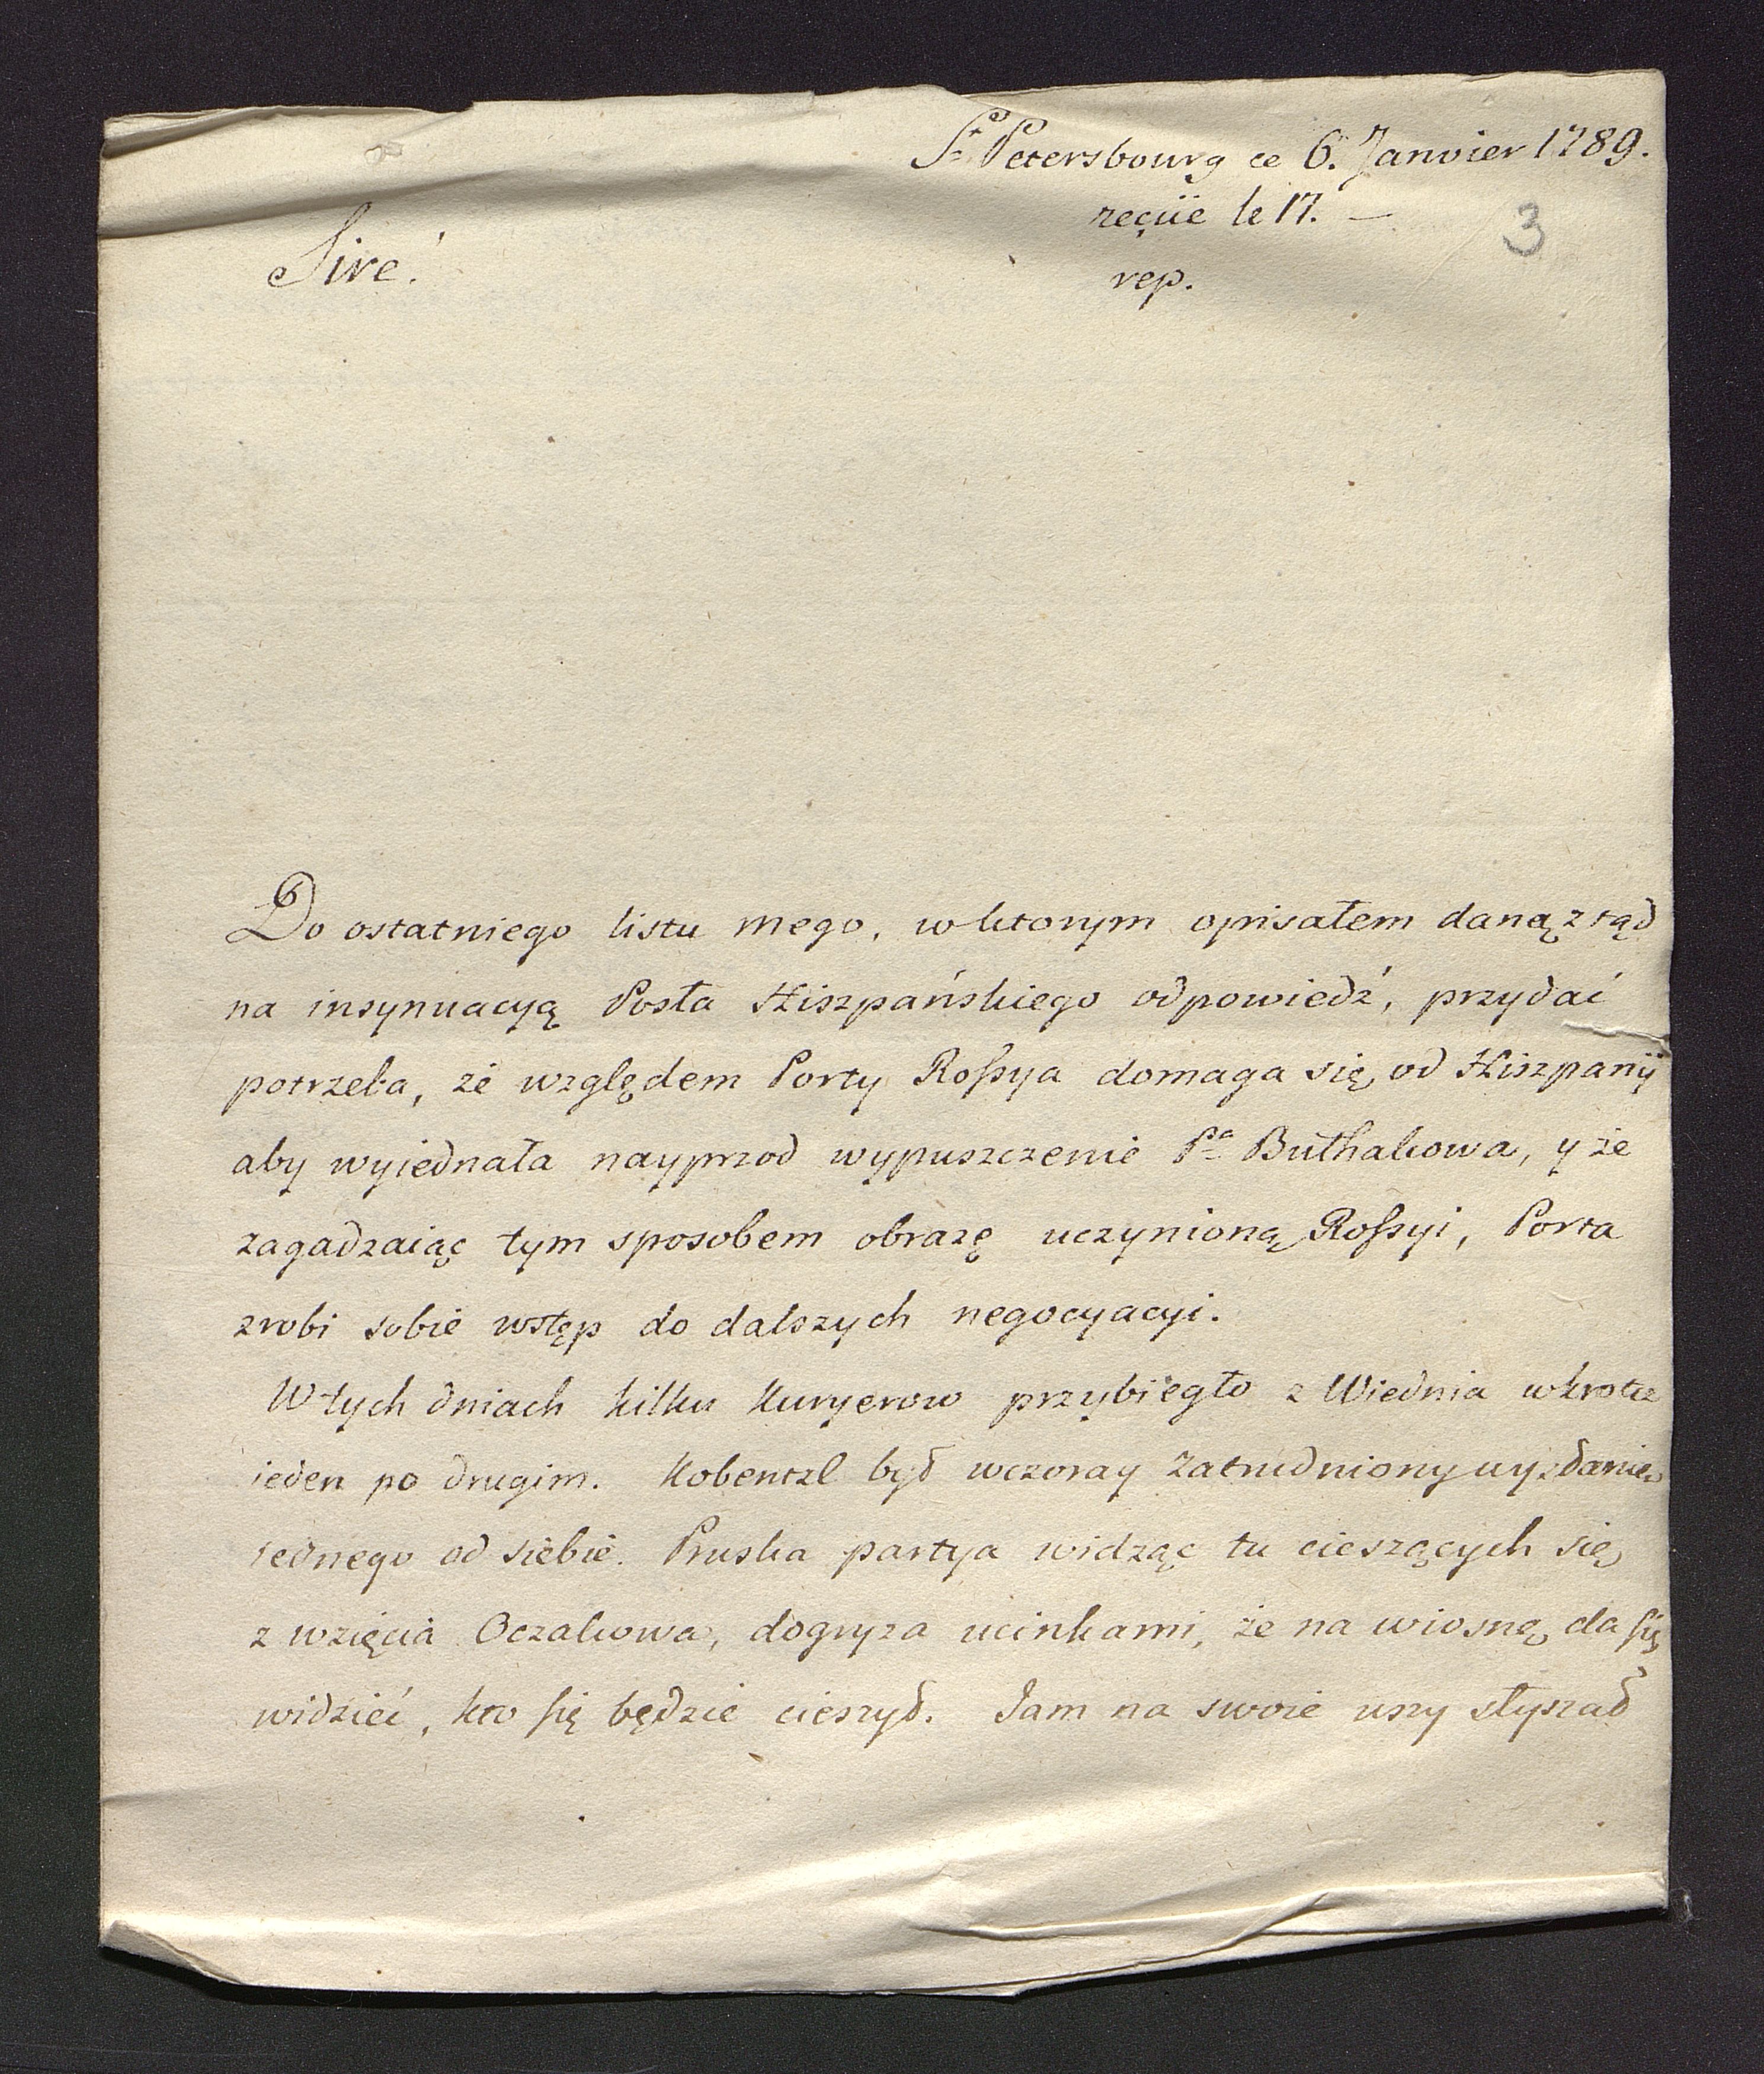 St Petersbourg ce 6. Janvier 1789.
reçüe le 17. —
3
Sire!
rep.
Do ostatniego listu mego, w ktorym opisałem daną ztąd
na insynuacyą Posła Hiszpańskiego odpowiedź, przydać
potrzeba, że względem Porty Rossya domaga się od Hiszpanij
aby wyiednała nayprzod wypuszczenie Pa Buthakowa, y że
zagadzaiąc tym sposobem obrazę uczynioną Rossyi, Porta
zrobi sobie wstęp do dalszych negocyacyi.
W tych dniach kilku Kuryerow przybiegło z Wiednia wkrotce
ieden po drugim. Kobentzl był wczoray zatrudniony wysłaniem
iednego od siebie. Pruska partya widząc tu cieszących się
z wzięcia Oczakowa, dogryza ucinkami, że na wiosnę da się
widzieć, kto się będzie cieszył. Jam na swoie uszy słyszał